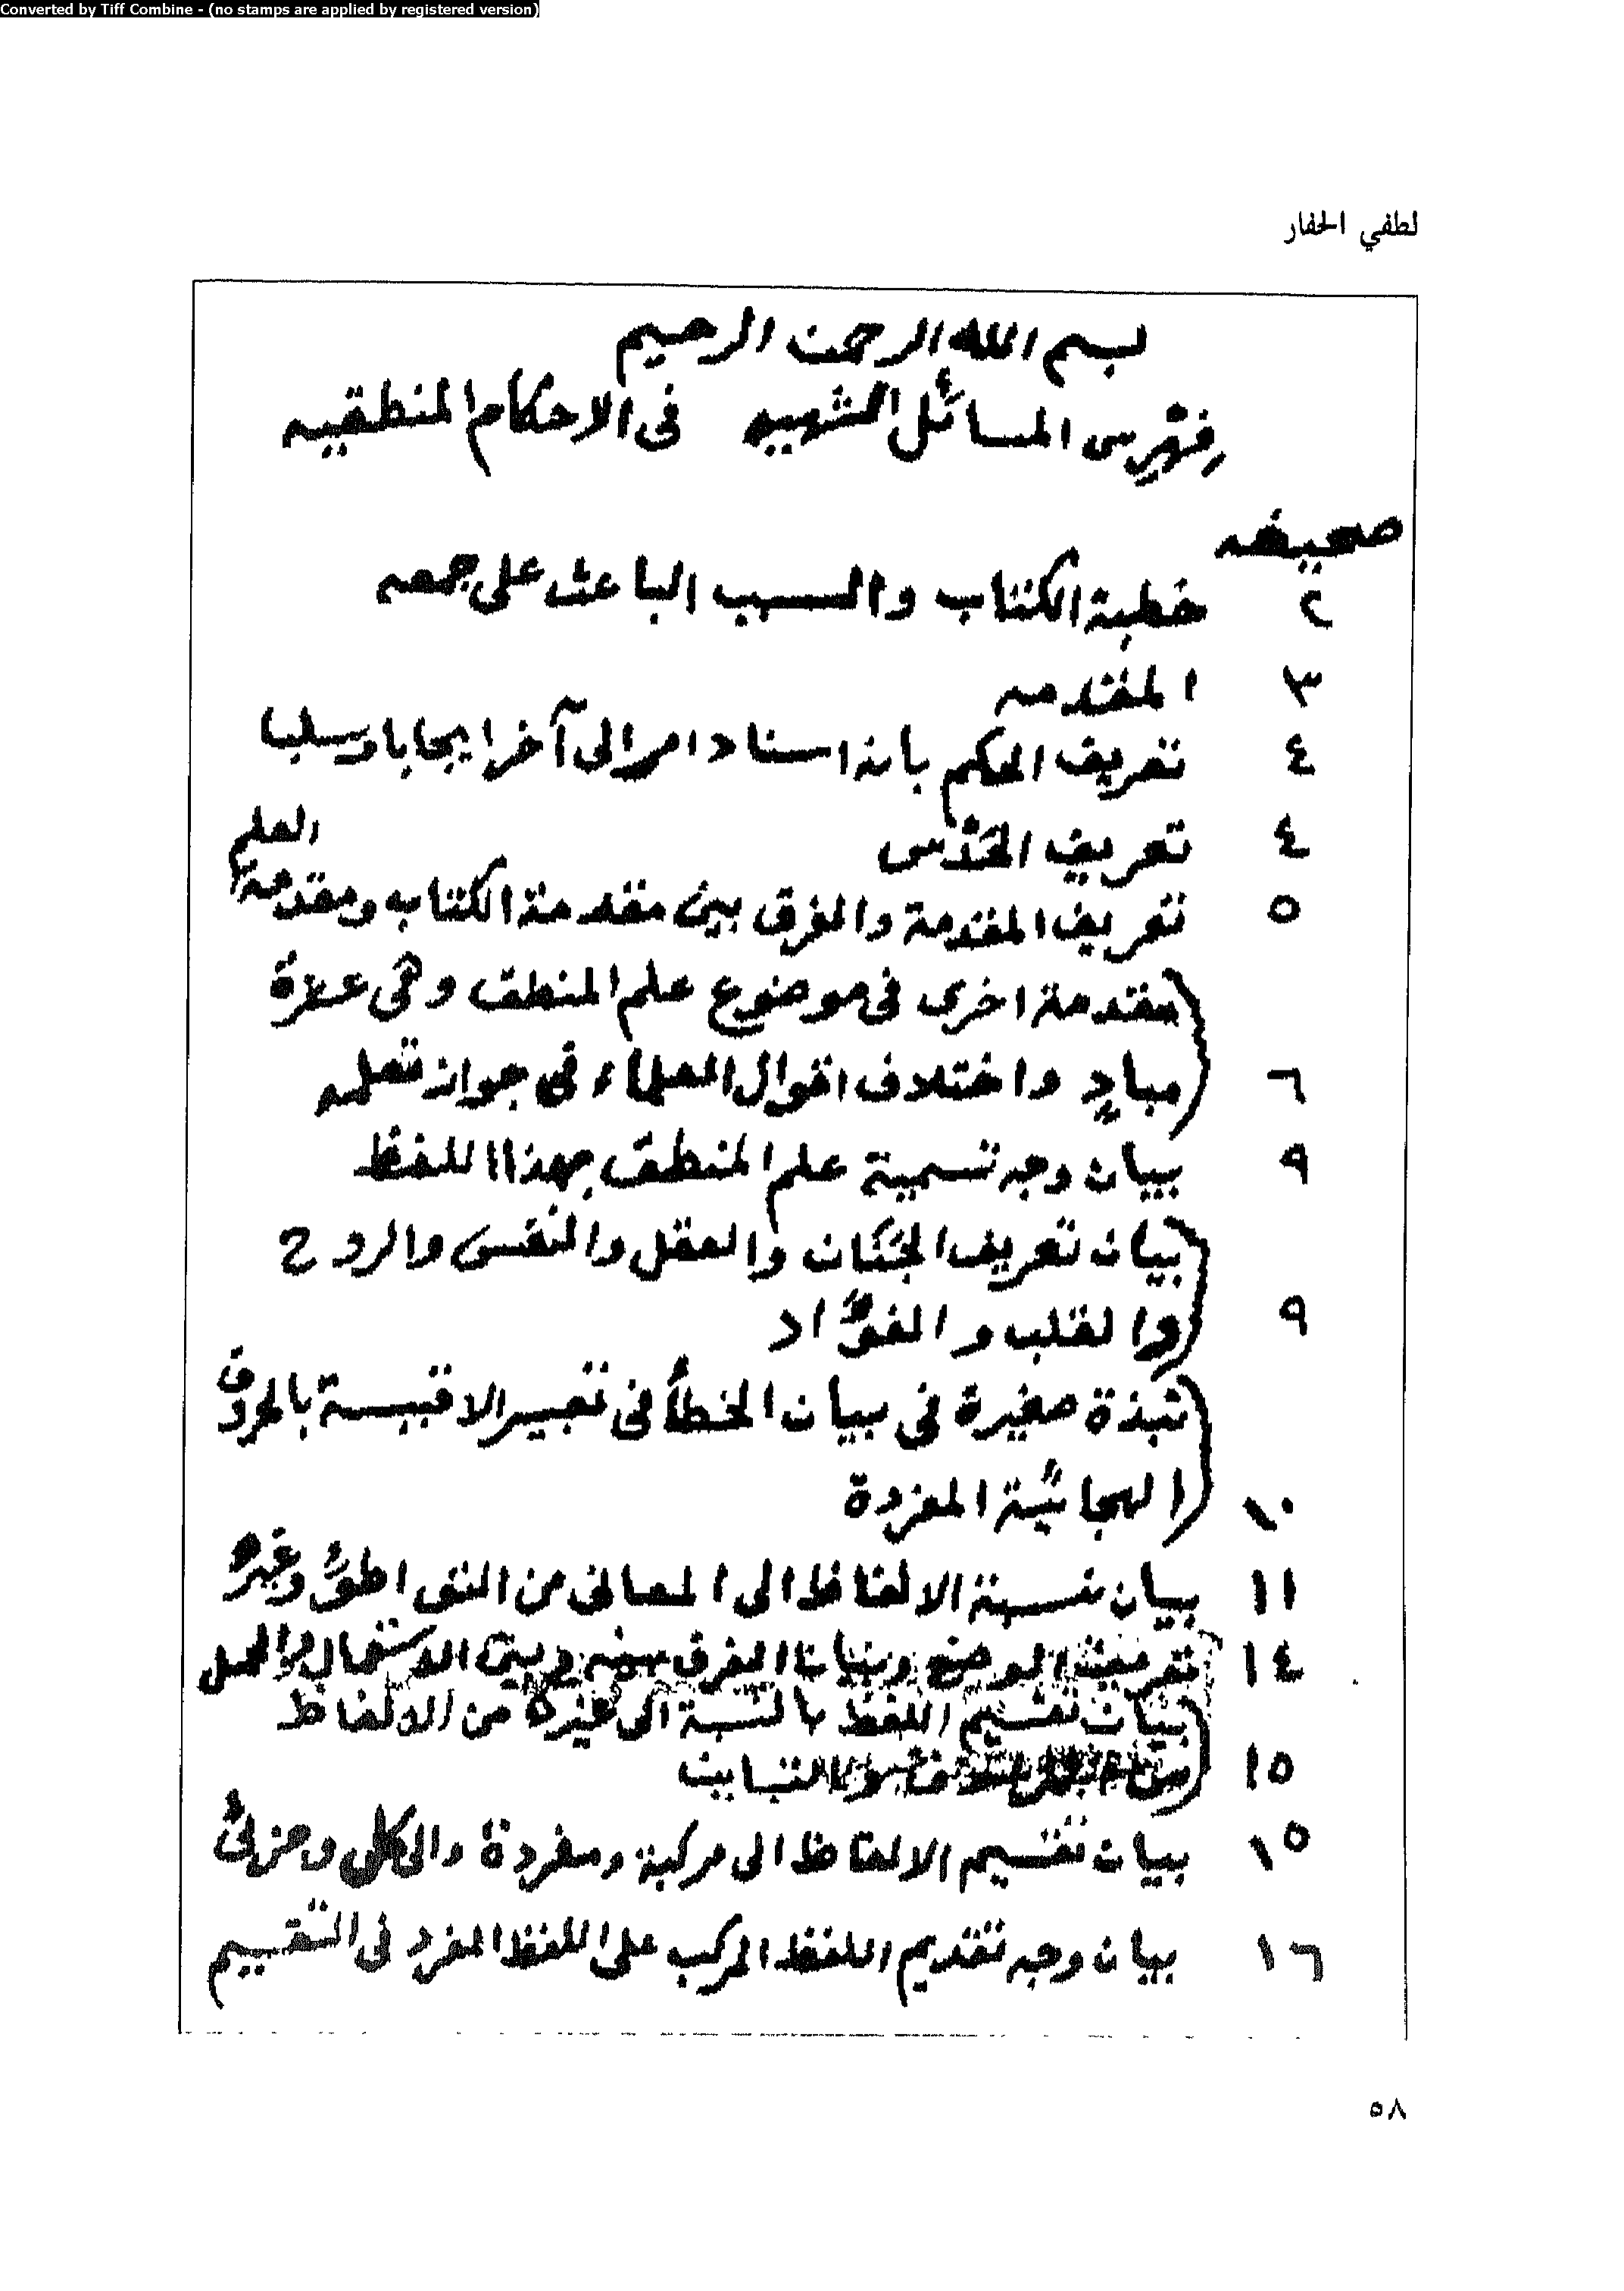 Converted by Tiff Combine - (no stamps are applied by registered version)
لطفي الحفار
بسم الله الرحمن الرحيم
فهرس المسائل الشهيه في الاحكام المنطقيه
صحيفه
٢ خطبة الكتاب والسبب الباعث على جمعه
٣ المقدمه
٤ تعريف الحكم بانه اسناد امر الى آخر ايجابا وسلبا
٤ تعريف الحَدْس
٥ تعريف المقدمة والفرق بين مقدمة الكتاب ومقدمة العلم
مقدمة اخرى في موضوع علم المنطق وهي عشرة
٦ مبادٍ واختلاف اقوال العلماء في جواز تعلمه
٩ بيان وجه تسمية علم المنطق بهذا اللفظ
بيان تعريف الجَنَان والعقل والنفس والروح
٩ والقلب والفؤاد
نبذة صغيرة في بيان الخطأ في تعبير الاقيسة بالحروف
١٠ الهجائية المفردة
١١ بيان نسبة الالفاظ الى المعاني من التواطؤ وغيره
١٤ تعريف الوضع وبيان الفرق بينه وبين الاستعمال والحمل
بيان تقسيم اللفظ بالنسبة الى غيره من الالفاظ
١٥ والتباين
١٥ بيان تقسيم الالفاظ الى مركبة ومفردة والى كلي وجزئي
١٦ بيان وجه تقديم اللفظ المركب على اللفظ المفرد في التقسيم
٥٨